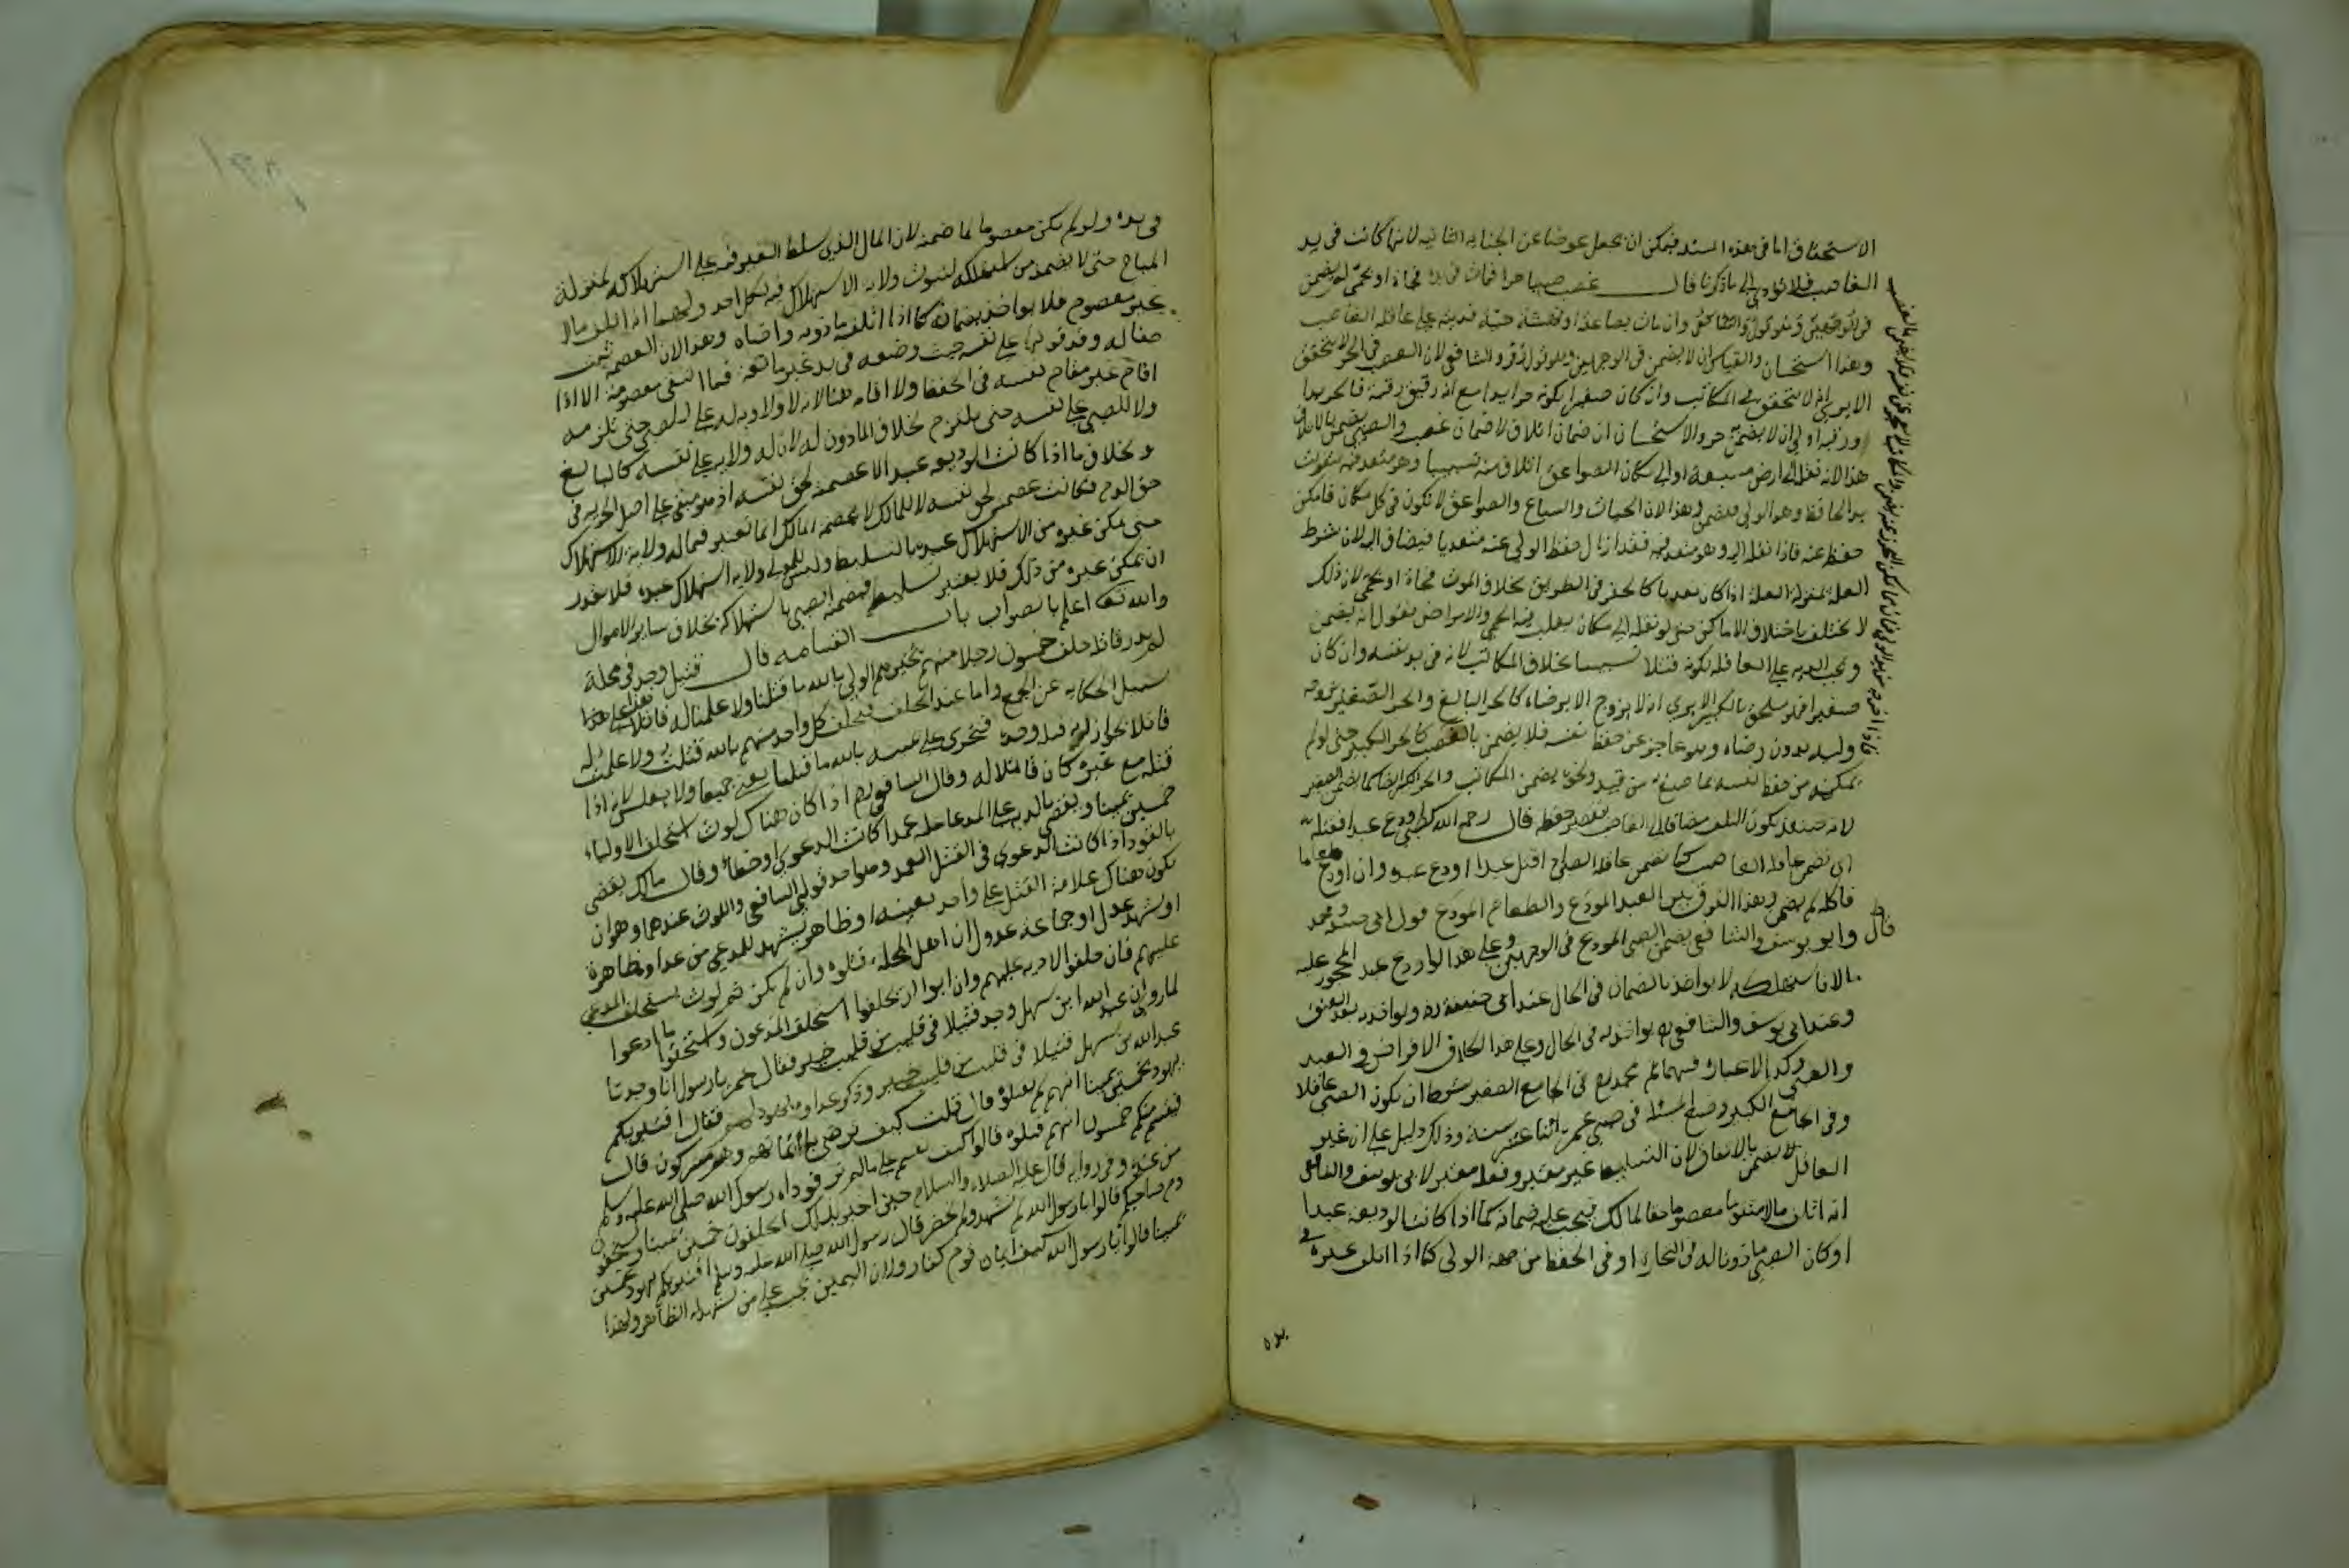 الاستحقاق اما في هذه المسئله فيمكن ان يجعل عوضا عن الجنايه الثانيه لانها كانت في يد
الغاصب فلا يؤدي الى ما ذكرنا قال غصب صبيا حرا فمات في يده فجاة او بحمى لم يضمن
وان مات بصاعقة او نهشة حية فديته على عاقلة الغاصب
وهذا استحسان والقياس ان لا يضمن في الوجهين وهو قول زفر والشافعي لان الغصب في الحر لا يتحقق
الا يرى انه لا يتحقق في المكاتب وان كان صغيرا لكونه حرا يدا مع انه رقيق رقبة فالحر يدا
ورقبة اولى ان لا يضمن به حر والاستحسان ان ضمان اتلاف لا ضمان غصب والصبي يضمن بالاتلاف
هذا لانه نقله الى ارض مسبعة او الى مكان الصواعق اتلاف منه تسبيبا وهو متعد فيه بتفويت
يد الحافظ وهو الولي فيضمن وهذا لان الحيات والسباع والصواعق لا تكون في كل مكان فامكن
حفظه عنه فاذا نقله اليه وهو متعد فيه فقد ازال حفظ الولي عنه متعديا فيضاف اليه لان شرط
العلة بمنزلة العلة اذا كان تعديا كالحفر في الطريق بخلاف الموت فجاة او بحمى لان ذلك
لا يختلف باختلاف الاماكن حتى لو نقله الى مكان يغلب فيه الحمى والامراض نقول انه يضمن
وتجب الديه على العاقله لكونه قتلا تسبيبا بخلاف المكاتب لانه في يد نفسه وان كان
صغيرا فهو ملحق بالكبير الا يرى انه لا يزوج الا برضاه كالحر البالغ والحر الصغير يزوجه
وليه بدون رضاه وهو عاجز عن حفظ نفسه فلا يضمن بالغصب كالحر الكبير حتى لو لم
يمكنه من حفظ نفسه بما صنع به من قيد ونحوه يضمن المكاتب والحر الكبير ايضا كما يضمن الصغير
لانه حينئذ يكون التلف مضافا الى الغاصب بتقصير حفظه قال رحمه الله كصبي اودع عبدا فقتله
اي تضمن عاقلة الغاصب كما تضمن عاقلة الصبي اذا قتل عبدا اودع عنده وان اودع طعاما
فاكله لم يضمن وهذا الفرق بين العبد المودع والطعام المودع قول ابي حنيفة ومحمد
قال وابو يوسف والشافعي يضمن الصبي المودع في الوجهين وعلى هذا لو اودع عبد المحجور عليه
مالا فاستهلكه لا يواخذ بالضمان في الحال عند ابي حنيفة ويواخذ به بعد العتق
وعند ابي يوسف والشافعي يواخذ به في الحال وعلى هذا الخلاف الاقراض والعبد
والصبي وكذا الاعارة فيهما ثم محمد في الجامع الصغير شرط ان يكون الصبي عاقلا
وفي الجامع الكبير وضع المسئلة في صبي عمره اثنا عشر سنة وذلك دليل على ان غير
العاقل لا يضمن بالاتفاق لان التسليط غير معتبر وفعله معتبر لابي يوسف والشافعي
انه اتلف مالا متقوما معصوما حقا لمالكه فيجب عليه ضمانه كما اذا كانت الوديعة عبدا
او كان الصبي ماذونا له في التجارة او في الحفظ من جهة الولي كما اذا اتلف غيره في
يده
في يده ولو لم يكن معصوما لما ضمنه لان المال الذي سلط الغير فيه على استهلاكه بمنزلة
المباح حتى لا يضمنه من استهلكه لثبوت ولاية الاستهلاك فيه لكل احد ولهما انه اتلف مالا
غير معصوم فلا يواخذ بضمانه كما اذا اتلفه باذنه ورضاه وهذا لان العصمه تثبت
حقا له وقد فوتها على نفسه حيث وضعه في يد غير مانعة فما ابقى معصومة الا اذا
اقام غيره مقام نفسه في الحفظ ولا اقامة هنا لانه لا ولاية له على الصبي حتى يلزمه
ولا للصبي على نفسه حتى يلتزم بخلاف الماذون له لان له ولاية على نفسه كالبالغ
وبخلاف ما اذا كانت الوديعه عبدا لان عصمته لحق نفسه اذ هو مبقى على اصل الحرية في
حق الدم فكانت عصمته لحق نفسه لا للمالك لان عصمة المالك انما تعتبر فيما له ولاية الاستهلاك
حتى يمكن غيره من الاستهلاك غيره بالتسليط وليس للمولى ولاية استهلاك عبده فلا يقدر
ان يمكن غيره من ذلك فلا يعتبر تسليطه فيضمنه الصبي باستهلاكه بخلاف ساير الاموال
والله تعالى اعلم بالصواب باب القسامه قال قتيل وجد في محلة
لم يدر قاتله حلف خمسون رجلا منهم يتخيرهم الولي بالله ما قتلناه ولا علمنا له قاتلا هذا على
سبيل الحكايه عن الجمع واما عند الحلف فيحلف كل واحد منهم بالله ما قتلت ولا علمت له
قاتلا لجواز انه قتله وحده فيجترئ على يمينه بالله ما قتلنا يعني جميعا ولا يعكس لانه اذا
قتله مع غيره كان قاتلا له وقال الشافعي اذا كان هناك لوث استحلف الاولياء
خمسين يمينا ويقضى بالدية على المدعى عليه عمدا كانت الدعوى او خطأ وقال مالك يقضى
بالقود اذا كانت الدعوى في القتل العمد وهو احد قولي الشافعي واللوث عندهما هو ان
يكون هناك علامة القتل على واحد بعينه او ظاهر يشهد للمدعي من عداوة ظاهرة
او شهد عدل او جماعة غير عدول ان اهل المحلة قتلوه وان لم يكن ثم لوث يستحلف المدعى
عليهم فان حلفوا لا دية عليهم وان ابوا ان يحلفوا استحلف المدعون واستحقوا ما ادعوا
لما روي ان عبد الله ابن سهل وجد قتيلا في قليب من قلب خيبر فقال يا رسول انا وجدنا
عبد الله بن سهل قتيلا في قليب من قلب خيبر وذكر عداوة اليهود لهم فقال افتبريكم
يهود بخمسين يمينا انهم لم يقتلوه قال قلت كيف نرضى بايمانهم وهم مشركون قال
فيقسم منكم خمسون انهم قتلوه قالوا كيف نقسم على ما لم نره فوداه رسول الله صلى الله عليه وسلم
من عنده وفي رواية قال عليه الصلاة والسلام حين اخبر بذلك اتحلفون خمسين يمينا وتستحقون
دم صاحبكم قالوا يا رسول الله لم نشهد ولم نحضر قال رسول الله صلى الله عليه وسلم افتبريكم يهود بخمسين
يمينا قالوا يا رسول الله كيف ايمان قوم كفار ولان اليمين تجب على من شهد له الظاهر ولهذا